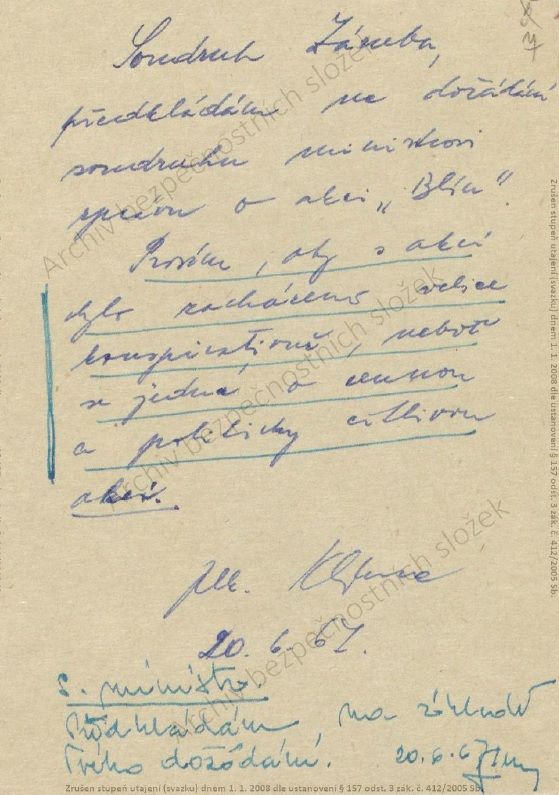 Soudruh Záruba,
předkládám na dožádání
soudruhu ministrovi
zprávu o akci „Blín".
Prosím, aby s akcí
bylo zacházeno velice
konspirativně, neboť
se jedná o cennou
a politicky citlivou
akci.
plk.
20. 6. 67.
s. ministr.
Předkládám, na základě
Tvého dožádání. 20.6.67
Archiv bezpečnostních složek
Archiv bezpečnostních složek
Archiv bezpečnostních složek
Zrušen stupeň utajení (svazku) dnem 1. 1. 2008 dle ustanovení § 157 odst. 3 zák. č. 412/2005 Sb.
Zrušen stupeň utajení (svazku) dnem 1. 1. 2008 dle ustanovení § 157 odst. 3 zák. č. 412/2005 Sb.